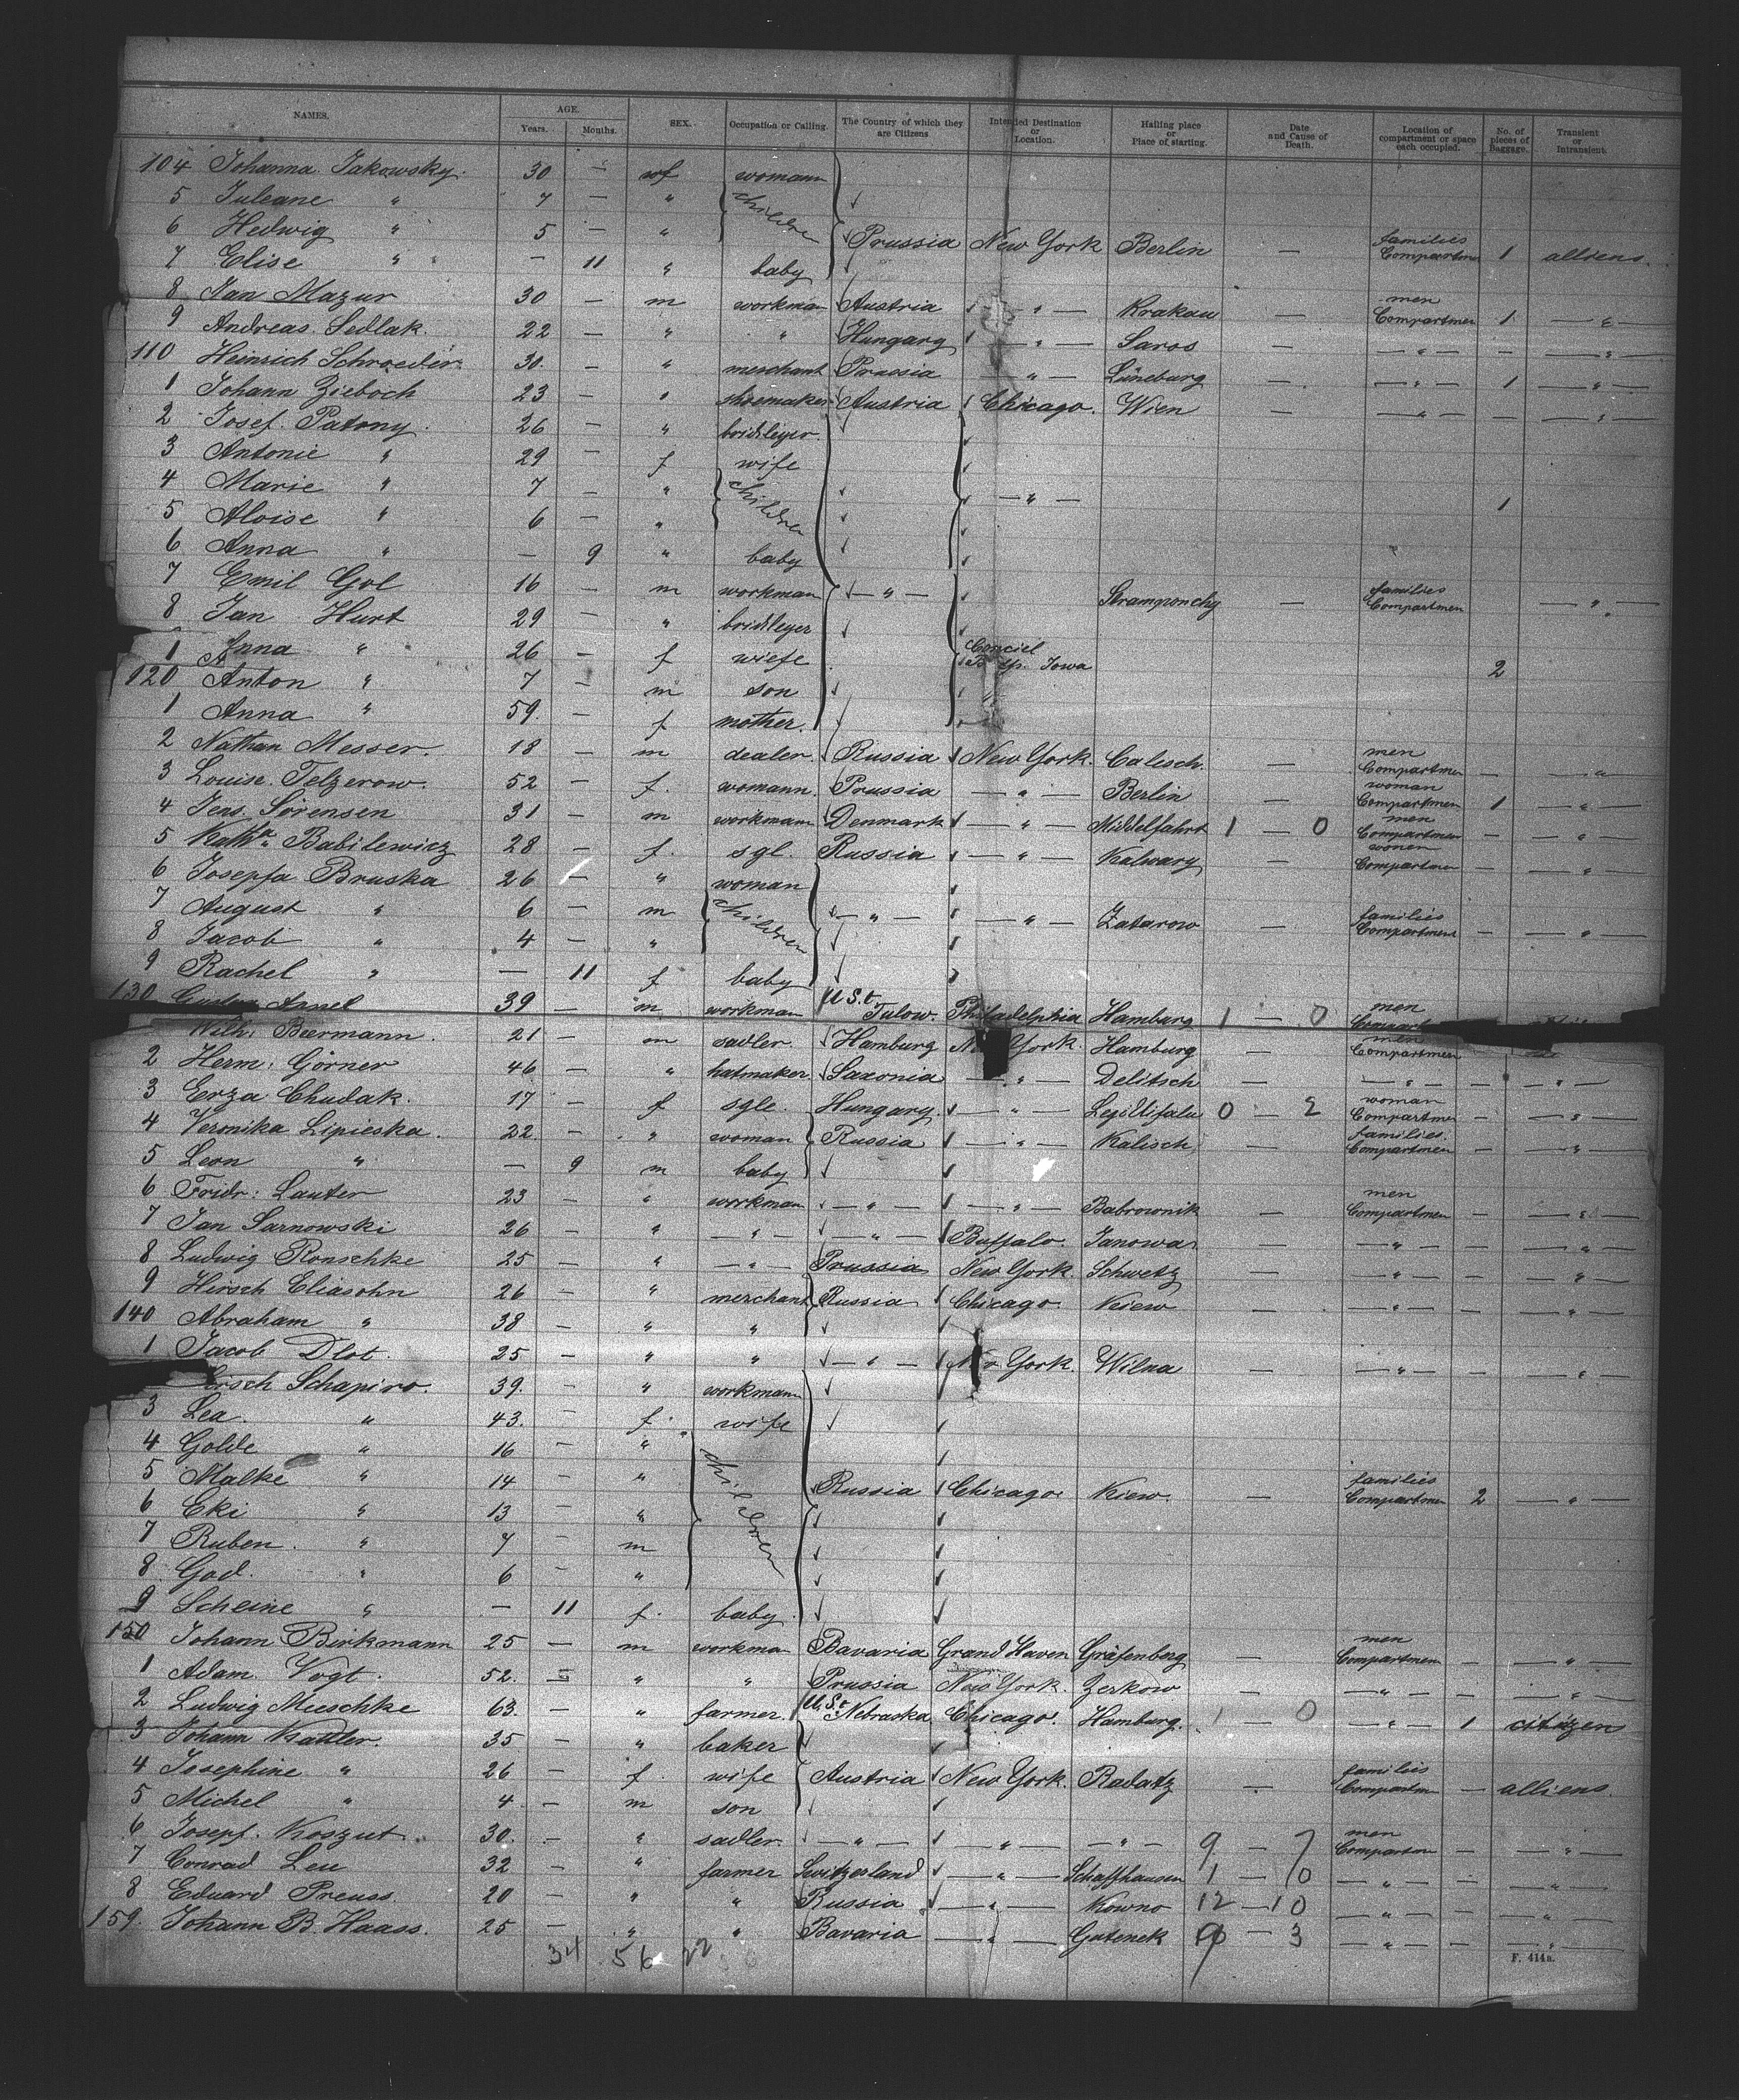 NAMES. AGE. Years. Months. SEX. Occupation or Calling. The Country of which they are Citizens Intended Destination or Location. Hailing place or Place of starting. Date and Cause of Death. Location of compartment or space each occupied. No. of pieces of Baggage. Transient or Intransient.
104 Johanna Jakowsky. 30 — wf womann
5 Juleane " 7 — " children
6 Hedwig " 5 — " Prussia New York Berlin — families Compartmen 1 alliens.
7 Elise " — 11 " baby
8 Jan Mazur 30 — m workman Austria — " — Krakau — men Compartmen 1 — " —
9 Andreas Sedlak 22 — " " Hungary — " — Saros — — " — — — " —
110 Heinrich Schroeder 30. — " merchant Prussia — " — Lüneburg — — " — 1 — " —
1 Johann Zieboch 23 — " shoemaker Austria Chicago. Wien — — " — — — " —
2 Josef Patony. 26 — " brickleyer.
3 Antonie " 29 — f wife
4 Marie " 7 — " children — " — 1
5 Aloise " 6 — "
6 Anna " — 9 " baby
7 Emil Gol 16 — m workman — " — Stramponchy — families Compartmen — " —
8 Jan Hurt 29 — " brickleyer
1 Anna " 26 — f wiefe Conciel Iowa 2
120 Anton " 7 — m son
1 Anna " 59. — f mother.
2 Nathan Messer. 18 — m dealer. Russia New York. Calisch. — men Compartmen — — " —
3 Louise Telzerow. 52 — f. womann. Prussia — " — Berlin — woman Compartmen 1 — " —
4 Jens Sörensen 31 — m workman Denmark — " — Middelfahrt 1 — 0 men Compartmen — — " —
5 Kath. Babilewicz 28 — f. sgl. Russia — " — Kalwary — women Compartmen — — " —
6 Josepha Bruska 26 — " woman
7 August " 6 — m children — " — — " — Zatarow families Compartment — — " —
8 Jacob " 4 — "
9 Rachel " — 11 f baby
130 39 — m workman U.S.t Tulow. Philadelphia Hamburg 1 — 0 men
Wilh. Baermann. 21 — m sadler. Hamburg New York. Hamburg — men Compartmen
2 Herm. Görner 46 — " hatmaker Saxonia — " — Delitsch — — " — — — " —
3 Erza Chudak. 17 — f sgle. Hungary. — " — Legittifalu 0 — 2 woman Compartmen — — " —
4 Veronika Lipieska. 22. — " woman Russia — " — Kalisch — families. Compartmen — — " —
5 Leon " — 9 m baby
6 Fridr: Lauter 23 — " workman — " — — " — Babrownik — men Compartmen — — " —
7 Jan Sarnowski 26 — " — " — — " — Buffalo. Janowa — — " — — — " —
8 Ludwig Ronschke 25 — " — " — Prussia New York. Schwetz — — " — — — " —
9 Hirsch Eliasohn 26 — " merchant Russia Chicago Kiew — — " — — — " —
140 Abraham " 38 — " "
1 Jacob Dlot. 25 — " " — " — New York. Wilna — — " — — — " —
Hirsch Schapiro. 39. — " workmann
3 Lea. " 43. — f. wife
4 Golde " 16 — " children
5 Malke " 14 — " Russia Chicago Kiew. — families Compartmen 2 — " —
6 Eki " 13 — "
7 Ruben. " 7 — m
8 God. " 6 — "
9 Scheine " — 11 f. baby
150 Johann Birkmann 25 — m workman Bavaria Grand Haven Gräfenberg — men Compartmen — — " —
1 Adam Vogt. 52. — " " Prussia New York. Zerkow — — " — — — " —
2 Ludwig Mueschke 63. — " farmer. U.S.t Nebraska Chicago. Hamburg. 1 — 0 — " — 1 citizen
3 Johann Kattler. 35 — " baker
4 Josephine " 26 — f wife Austria New York. Radatz — families Compartm — alliens.
5 Michel " 4 — m son
6 Josepf. Koszut. 30. — " sadler. — " — — " — — " — 9 — 7 men Compartm — — " —
7 Conrad Leu 32 — " farmer Switzerland — " — Schaffhausen 1 — 10 — " — — — " —
8 Eduard Preuss 20 — " " Russia — " — Kowno 12 — 10 — " — — — " —
159. Johann B. Haass. 25 — " " Bavaria — " — Gutenek — 3 — " — — — " —
34 56 22
F. 414a.